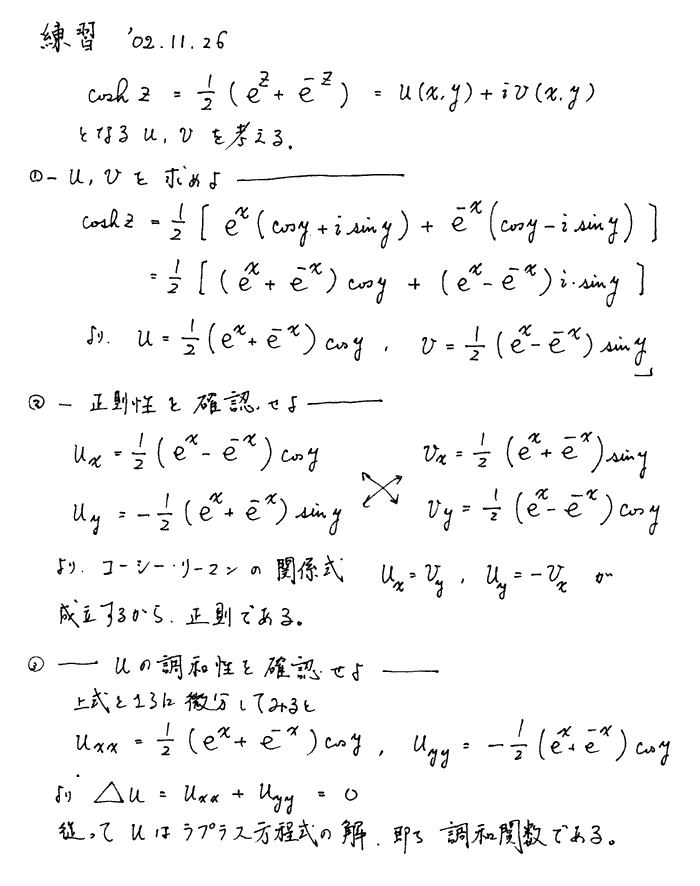 練習 '02.11.26
cosh z = 1/2 (e^z + e^-z) = u(x,y) + i v(x,y)
となる u, v を考える.
① — u, v を 求めよ ——
cosh z = 1/2 [ e^x (cos y + i sin y) + e^-x (cos y - i sin y) ]
= 1/2 [ (e^x + e^-x) cos y + (e^x - e^-x) i・sin y ]
より. u = 1/2 (e^x + e^-x) cos y , v = 1/2 (e^x - e^-x) sin y 」
② — 正則性を確認せよ ——
u_x = 1/2 (e^x - e^-x) cos y v_x = 1/2 (e^x + e^-x) sin y
u_y = -1/2 (e^x + e^-x) sin y v_y = 1/2 (e^x - e^-x) cos y
より. コーシー・リーマンの関係式 u_x = v_y , u_y = -v_x が
成立するから. 正則である。
③ — u の調和性を確認せよ ——
上式をさらに微分してみると
u_xx = 1/2 (e^x + e^-x) cos y , u_yy = -1/2 (e^x + e^-x) cos y
より △u = u_xx + u_yy = 0
従って u はラプラス方程式の解. 即ち 調和関数である。